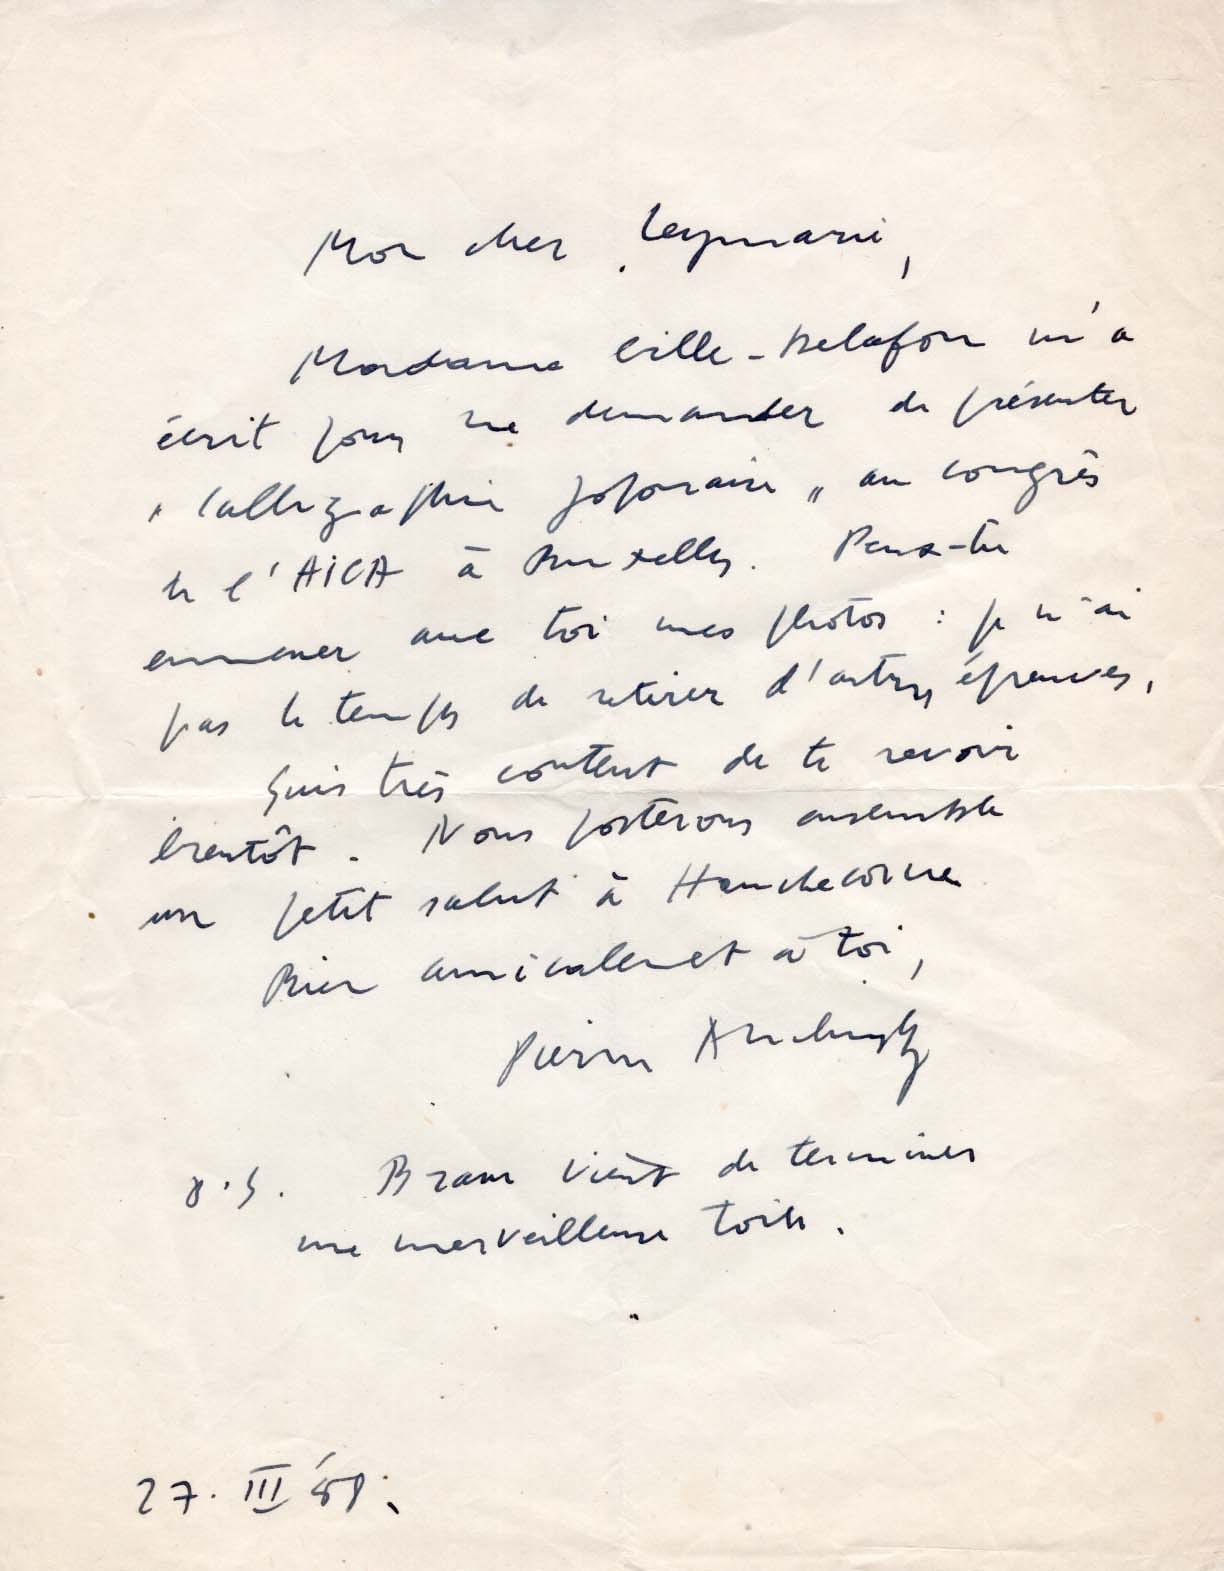 Mon cher Leymarie,
Madame Gille-Delafon m'a
écrit pour me demander de présenter
"Calligraphie japonaise" au congrès
de l'AICA à Bruxelles. Peux-tu
emmener avec toi mes photos : je n'ai
pas le temps de retirer d'autres épreuves.
Suis très content de te revoir
bientôt. Nous posterons ensemble
un petit salut à Hauchecorne
Bien amicalement à toi,
Pierre Alechinsky
P.S. Bram vient de terminer
une merveilleuse toile.
27. III '58.